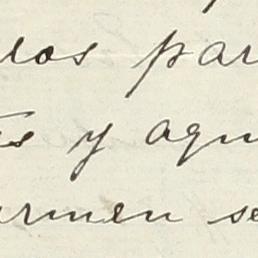 los par
s y aqu
armen se